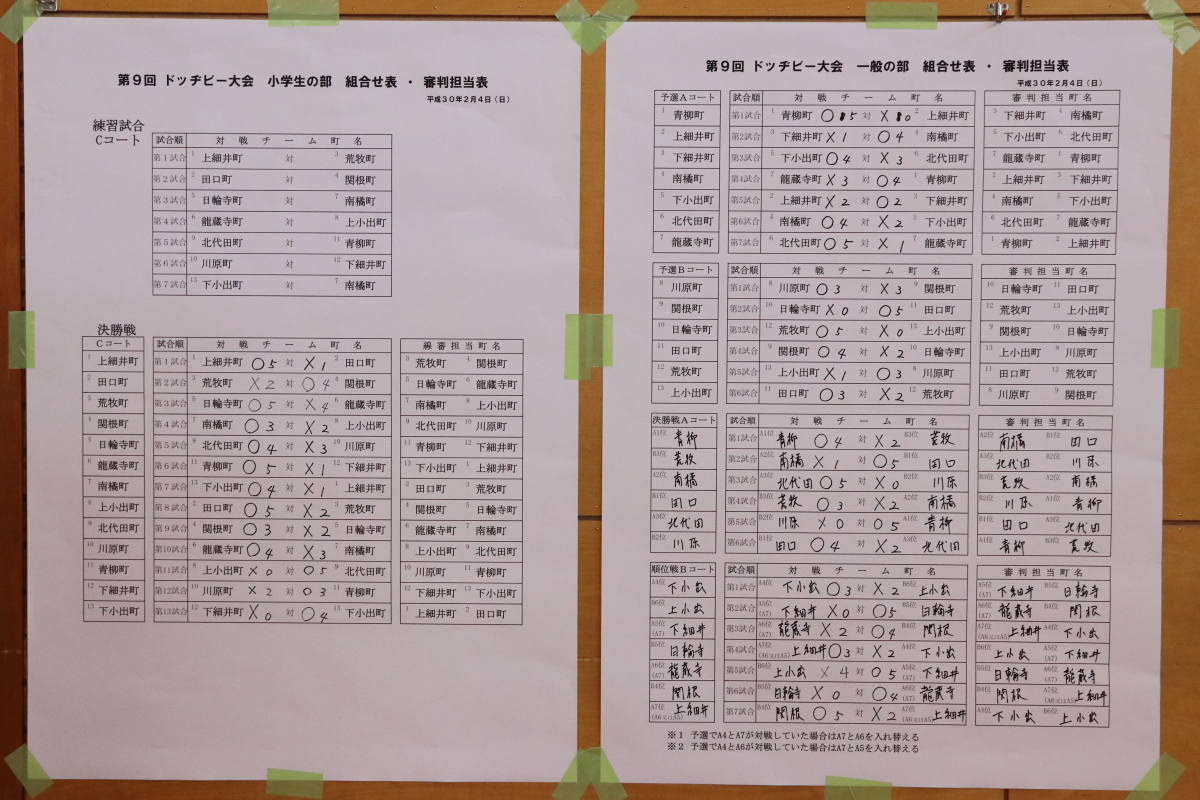 第9回 ドッヂビー大会 小学生の部 組合せ表 ・ 審判担当表
平成30年2月4日(日)
練習試合
Cコート
試合順 対戦チーム町名
第1試合 1 上細井町 対 3 荒牧町
第2試合 2 田口町 対 4 関根町
第3試合 5 日輪寺町 対 7 南橘町
第4試合 6 龍蔵寺町 対 8 上小出町
第5試合 9 北代田町 対 11 青柳町
第6試合 10 川原町 対 12 下細井町
第7試合 13 下小出町 対 7 南橘町
決勝戦
Cコート 試合順 対戦チーム町名 線審担当町名
1 上細井町 第1試合 1 上細井町 ○5 対 ×1 2 田口町 3 荒牧町 4 関根町
2 田口町 第2試合 3 荒牧町 ×2 対 ○4 4 関根町 5 日輪寺町 6 龍蔵寺町
3 荒牧町 第3試合 5 日輪寺町 ○5 対 ×4 6 龍蔵寺町 7 南橘町 8 上小出町
4 関根町 第4試合 7 南橘町 ○3 対 ×2 8 上小出町 9 北代田町 10 川原町
5 日輪寺町 第5試合 9 北代田町 ○4 対 ×3 10 川原町 11 青柳町 12 下細井町
6 龍蔵寺町 第6試合 11 青柳町 ○5 対 ×1 12 下細井町 13 下小出町 1 上細井町
7 南橘町 第7試合 13 下小出町 ○4 対 ×1 1 上細井町 2 田口町 3 荒牧町
8 上小出町 第8試合 2 田口町 ○5 対 ×2 3 荒牧町 4 関根町 5 日輪寺町
9 北代田町 第9試合 4 関根町 ○3 対 ×2 5 日輪寺町 6 龍蔵寺町 7 南橘町
10 川原町 第10試合 6 龍蔵寺町 ○4 対 ×3 7 南橘町 8 上小出町 9 北代田町
11 青柳町 第11試合 8 上小出町 ×0 対 ○5 9 北代田町 10 川原町 11 青柳町
12 下細井町 第12試合 10 川原町 ×2 対 ○3 11 青柳町 12 下細井町 13 下小出町
13 下小出町 第13試合 12 下細井町 ×0 対 ○4 13 下小出町 1 上細井町 2 田口町
第9回 ドッヂビー大会 一般の部 組合せ表 ・ 審判担当表
平成30年2月4日(日)
予選Aコート 試合順 対戦チーム町名 審判担当町名
1 青柳町 第1試合 1 青柳町 ○5 対 ×0 2 上細井町 3 下細井町 4 南橘町
2 上細井町 第2試合 3 下細井町 ×1 対 ○4 4 南橘町 5 下小出町 6 北代田町
3 下細井町 第3試合 5 下小出町 ○4 対 ×3 6 北代田町 7 龍蔵寺町 1 青柳町
4 南橘町 第4試合 7 龍蔵寺町 ×3 対 ○4 1 青柳町 2 上細井町 3 下細井町
5 下小出町 第5試合 2 上細井町 ×2 対 ○2 3 下細井町 4 南橘町 5 下小出町
6 北代田町 第6試合 4 南橘町 ○4 対 ×2 5 下小出町 6 北代田町 7 龍蔵寺町
7 龍蔵寺町 第7試合 6 北代田町 ○5 対 ×1 7 龍蔵寺町 1 青柳町 2 上細井町
予選Bコート 試合順 対戦チーム町名 審判担当町名
8 川原町 第1試合 8 川原町 ○3 対 ×3 9 関根町 10 日輪寺町 11 田口町
9 関根町 第2試合 10 日輪寺町 ×0 対 ○5 11 田口町 12 荒牧町 13 上小出町
10 日輪寺町 第3試合 12 荒牧町 ○5 対 ×0 13 上小出町 9 関根町 10 日輪寺町
11 田口町 第4試合 9 関根町 ○4 対 ×2 10 日輪寺町 13 上小出町 8 川原町
12 荒牧町 第5試合 13 上小出町 ×1 対 ○3 8 川原町 11 田口町 12 荒牧町
13 上小出町 第6試合 11 田口町 ○3 対 ×2 12 荒牧町 8 川原町 9 関根町
決勝戦Aコート 試合順 対戦チーム町名 審判担当町名
A1位 青柳 第1試合 A1位 青柳 ○4 対 ×2 B3位 荒牧 A2位 南橘 B1位 田口
B3位 荒牧 第2試合 A2位 南橘 ×1 対 ○5 B1位 田口 A3位 北代田 B2位 川原
A2位 南橘 第3試合 A3位 北代田 ○5 対 ×0 B2位 川原 B3位 荒牧 A2位 南橘
B1位 田口 第4試合 B3位 荒牧 ○3 対 ×2 A2位 南橘 B2位 川原 A1位 青柳
A3位 北代田 第5試合 B2位 川原 ×0 対 ○5 A1位 青柳 B1位 田口 A3位 北代田
B2位 川原 第6試合 B1位 田口 ○4 対 ×2 A3位 北代田 A1位 青柳 B3位 荒牧
順位戦Bコート 試合順 対戦チーム町名 審判担当町名
A4位 下小出 第1試合 A4位 下小出 ○3 対 ×2 B6位 上小出 A5位(A7) 下細井 B5位 日輪寺
B6位 上小出 第2試合 A5位(A7) 下細井 ×0 対 ○5 B5位 日輪寺 A6位(A7) 龍蔵寺 B4位 関根
A5位(A7) 下細井 第3試合 A6位(A7) 龍蔵寺 ×2 対 ○4 B4位 関根 A7位(A6又はA5) 上細井 A4位 下小出
B5位 日輪寺 第4試合 A7位(A6又はA5) 上細井 ○3 対 ×2 A4位 下小出 B6位 上小出 A5位(A7) 下細井
A6位(A7) 龍蔵寺 第5試合 B6位 上小出 ×4 対 ○5 A5位(A7) 下細井 B5位 日輪寺 A6位(A7) 龍蔵寺
B4位 関根 第6試合 B5位 日輪寺 ×0 対 ○4 A6位(A7) 龍蔵寺 B4位 関根 A7位(A6又はA5) 上細井
A7位(A6又はA5) 上細井 第7試合 B4位 関根 ○5 対 ×2 A7位(A6又はA5) 上細井 A4位 下小出 B6位 上小出
※1 予選でA4とA7が対戦していた場合はA7とA6を入れ替える
※2 予選でA4とA6が対戦していた場合はA7とA5を入れ替える